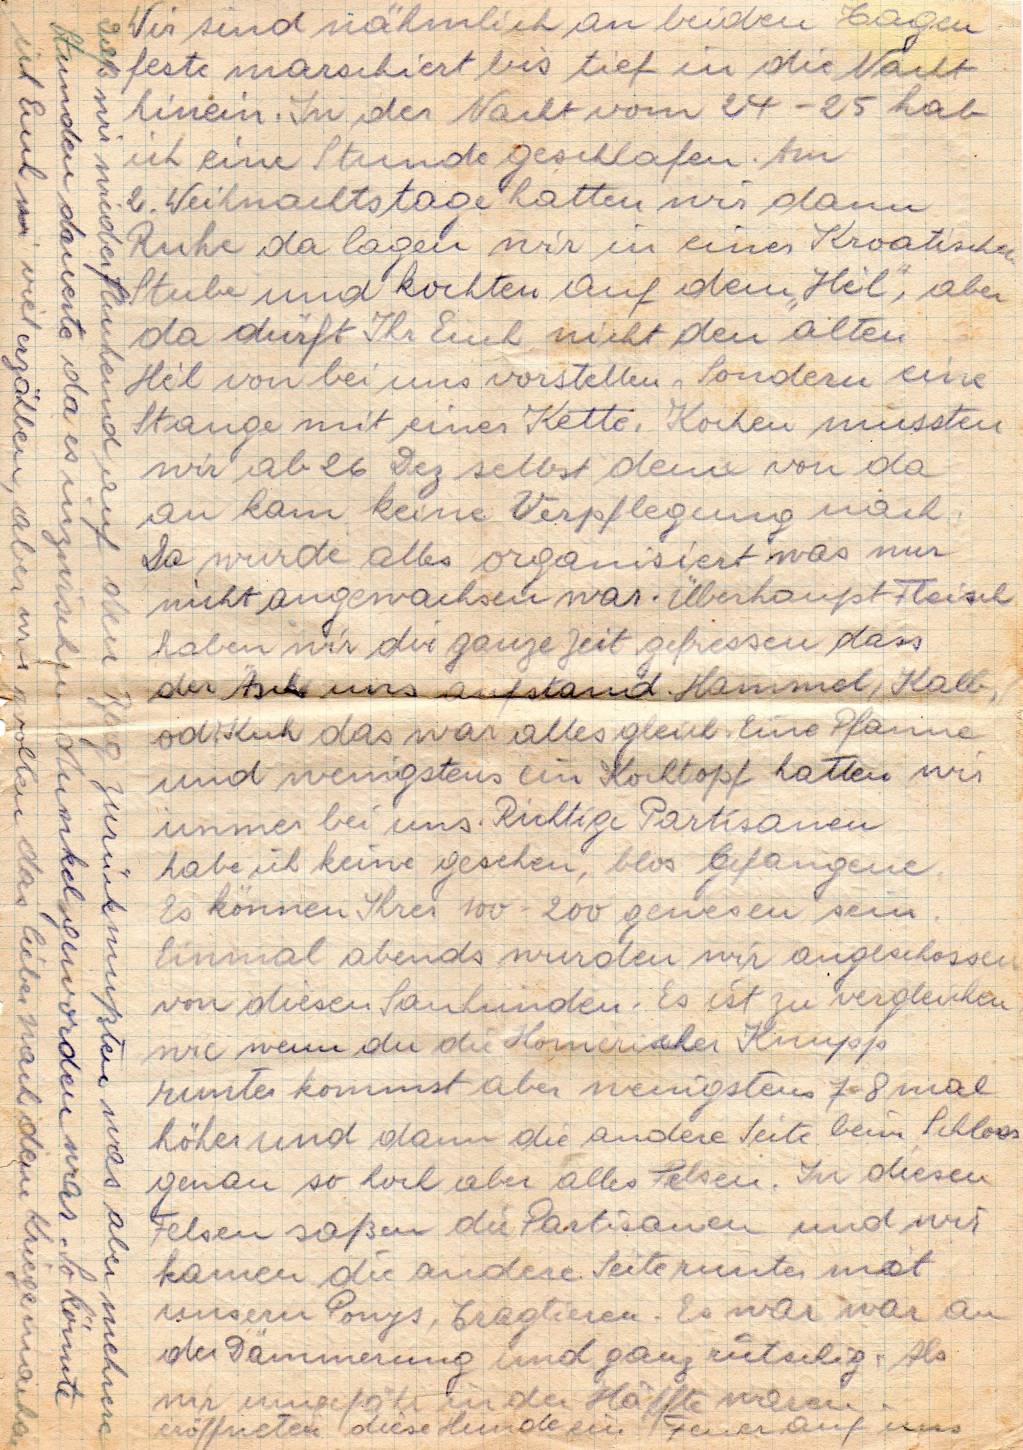 Wir sind nähmlich an beiden Tagen
feste marschiert bis tief in die Nacht
hinein. In der Nacht vom 24-25 hab
ich eine Stunde geschlafen. Am
2. Weihnachtstage hatten wir dann
Ruhe da lagen wir in einer Kroatischen
Stube und kochten auf dem „Hel", aber
da dürft Ihr Euch nicht den alten
Hel von bei uns vorstellen. Sondern eine
Stange mit einer Kette. Kochen mussten
wir ab 26 Dez selbst denn von da
an kam keine Verpflegung nach.
Da wurde alles organisiert was nur
nicht angewachsen war. Überhaupt Fleisch
haben wir die ganze Zeit gefressen dass
der uns aufstand. Hammel, Kalb,
od. Kuh das war alles gleich. Eine Pfanne
und wenigstens ein Kochtopf hatten wir
immer bei uns. Richtige Partisanen
habe ich keine gesehen, blos Gefangene.
Es können Ihrer 100-200 gewesen sein.
Einmal abends wurden wir angeschossen
von diesen Sauhunden. Es ist zu vergleichen
wie wenn du die Knupp
runter kommst aber wenigstens 7-8 mal
höher und dann die andere Seite beim Schloss
genau so hoch aber alles Felsen. In diesen
Felsen saßen die Partisanen und wir
kamen die andere Seite runter mit
unsern Ponys, Tragtieren. Es war war an
der Dämmerung und ganz rutschig. Als
wir ungefähr in der Hälfte waren
eröffneten diese Hunde ein Feuer auf uns
wir wieder auf den zurück mußten was aber mehrere
Stunden dauerte da es inzwischen dunkel geworden war. So könnte
ich Euch viel erzählen, aber wir wollen das lieber nach dem Kriege machen